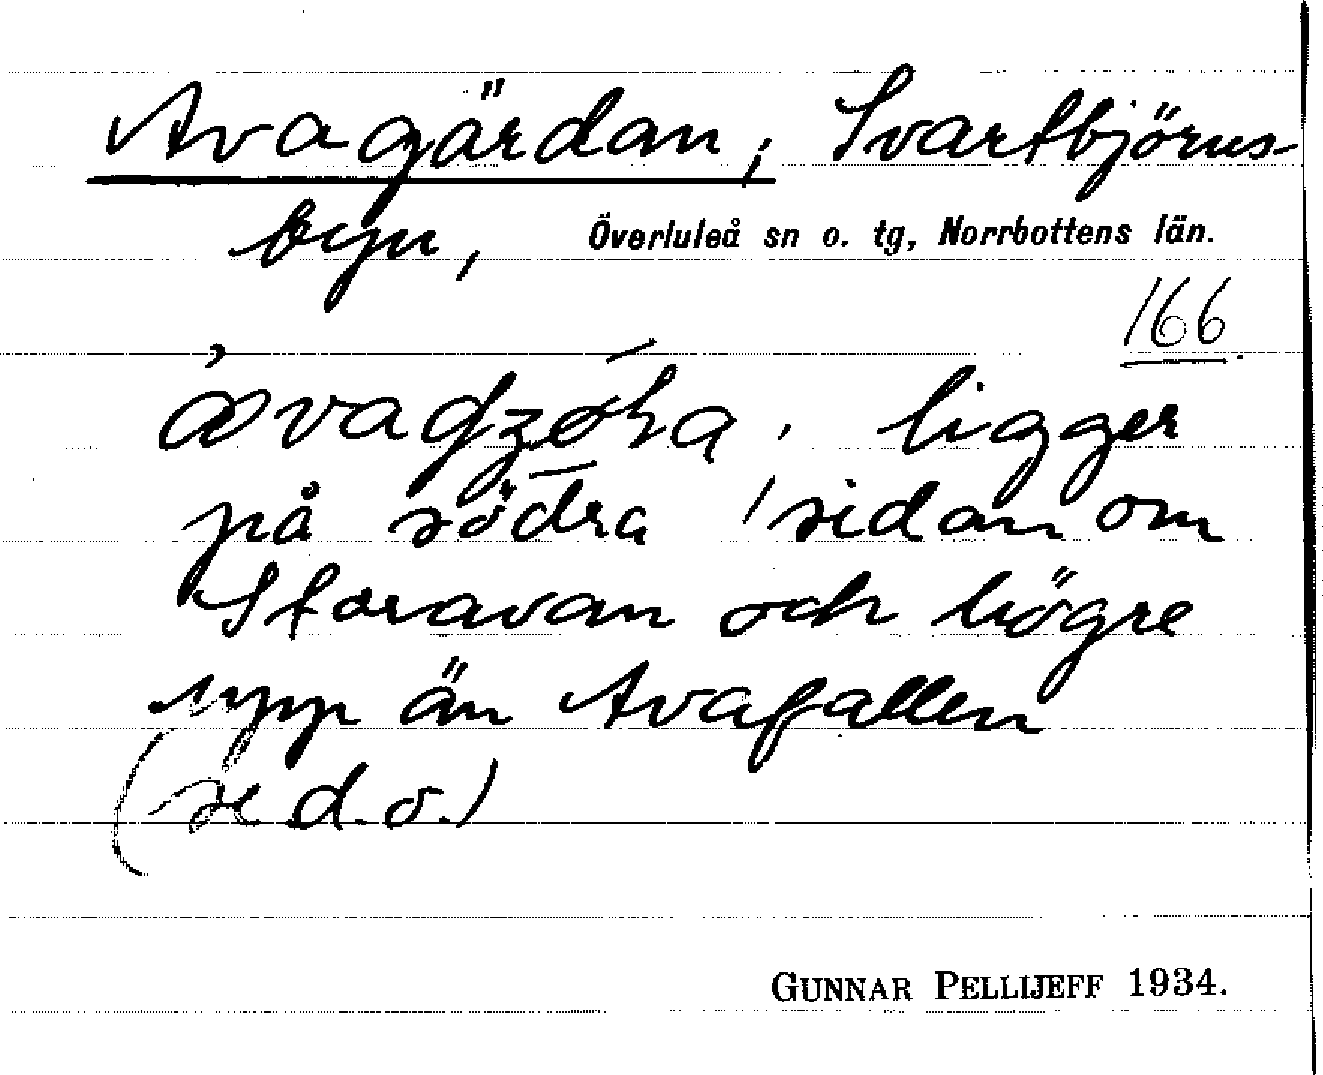 Avagärdan, Svartbjörns-
byn, Överluleå sn o. tg, Norrbottens län.
166
ligger
på södra sidan om
Storavan och högre
upp än Avafallen
(se d.o.)
GUNNAR PELLIJEFF 1934.